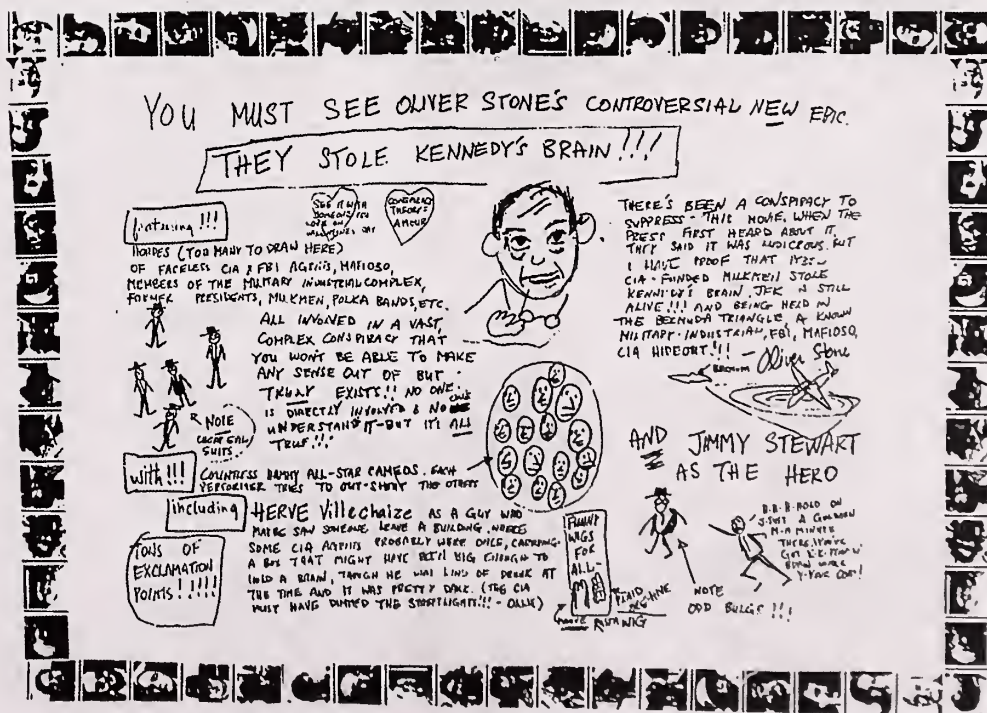 YOU MUST SEE OLIVER STONE'S CONTROVERSIAL NEW EPIC.
THEY STOLE KENNEDY'S BRAIN!!!
featuring!!!
SEE IT WITH
SOMEONE YOU
LOVE ON
VALENTINE'S DAY
CONSPIRACY
THEORY'S
AMOUR
HORDES (TOO MANY TO DRAW HERE)
OF FACELESS CIA & FBI AGENTS, MAFIOSO,
MEMBERS OF THE MILITARY INDUSTRIAL COMPLEX,
FORMER PRESIDENTS, MILKMEN, POLKA BANDS, ETC.
ALL INVOLVED IN A VAST,
COMPLEX CONSPIRACY THAT
YOU WON'T BE ABLE TO MAKE
ANY SENSE OUT OF BUT
TRULY EXISTS!! NO ONE
IS DIRECTLY INVOLVED & NO ONE
UNDERSTANDS IT-BUT IT'S ALL
TRUE!!!
NOTE
SUITS
with!!!
COUNTLESS ALL-STAR CAMEOS. EACH
PERFORMER TRIES TO OUT- THE OTHERS
including
HERVE Villechaize AS A GUY WHO
MAYBE SAW SOMEONE LEAVE A BUILDING, WHERE
SOME CIA AGENTS PROBABLY WERE ONCE, CARRYING
A BOX THAT MIGHT HAVE BEEN BIG ENOUGH TO
HOLD A BRAIN, THOUGH HE WAS KIND OF DRUNK AT
THE TIME AND IT WAS PRETTY DARK. (THE CIA
MUST HAVE DIMMED THE STREETLIGHTS!!! - OLLIE)
TONS OF
EXCLAMATION
POINTS!!!!!!
FUNNY
WIGS
FOR
ALL-
PLAID
NOTE WIG
THERE'S BEEN A CONSPIRACY TO
SUPPRESS THIS MOVIE, WHEN THE
PRESS FIRST HEARD ABOUT IT,
THEY SAID IT WAS LUDICROUS. BUT
I HAVE PROOF THAT
CIA-FUNDED MILKMEN STOLE
KENNEDY'S BRAIN. JFK IS STILL
ALIVE!!! AND BEING HELD IN
THE BERMUDA TRIANGLE, A KNOWN
MILITARY-INDUSTRIAL, FBI, MAFIOSO,
CIA HIDEOUT!!!
- Oliver Stone
AND JIMMY STEWART
AS THE HERO
HOLD ON
J-JUST A
M-A MINUTE
THERE,
GOT
Y-YOUR COAT!
NOTE
ODD BULGE!!!